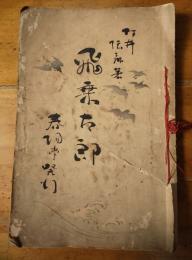 村井弦斎著
飛乗太郎
春陽堂発行